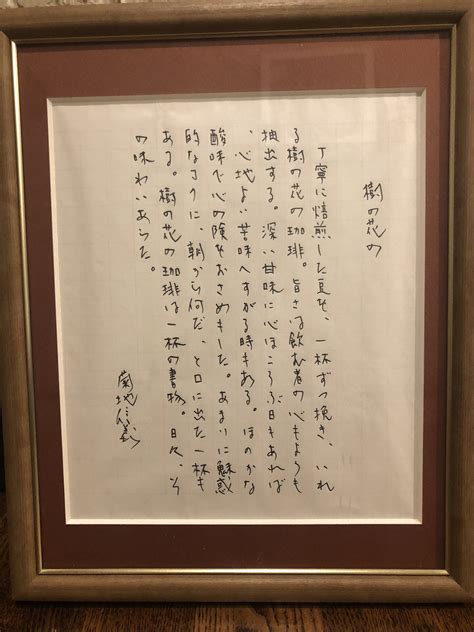 樹の花の
丁寧に焙煎した豆を、一杯ずつ挽き、いれ
る樹の花の珈琲。旨さは飲む者の心もようも
抽出する。深い甘味に心ほころぶ日もあれば
、心地よい苦味へすがる時もある。ほのかな
酸味で心の険をおさめもした。あまりに魅惑
的なコクに、朝から何だ、と口に出た一杯も
ある。樹の花の珈琲は一杯の書物。日々、そ
の味わいあらた。
菊地信義